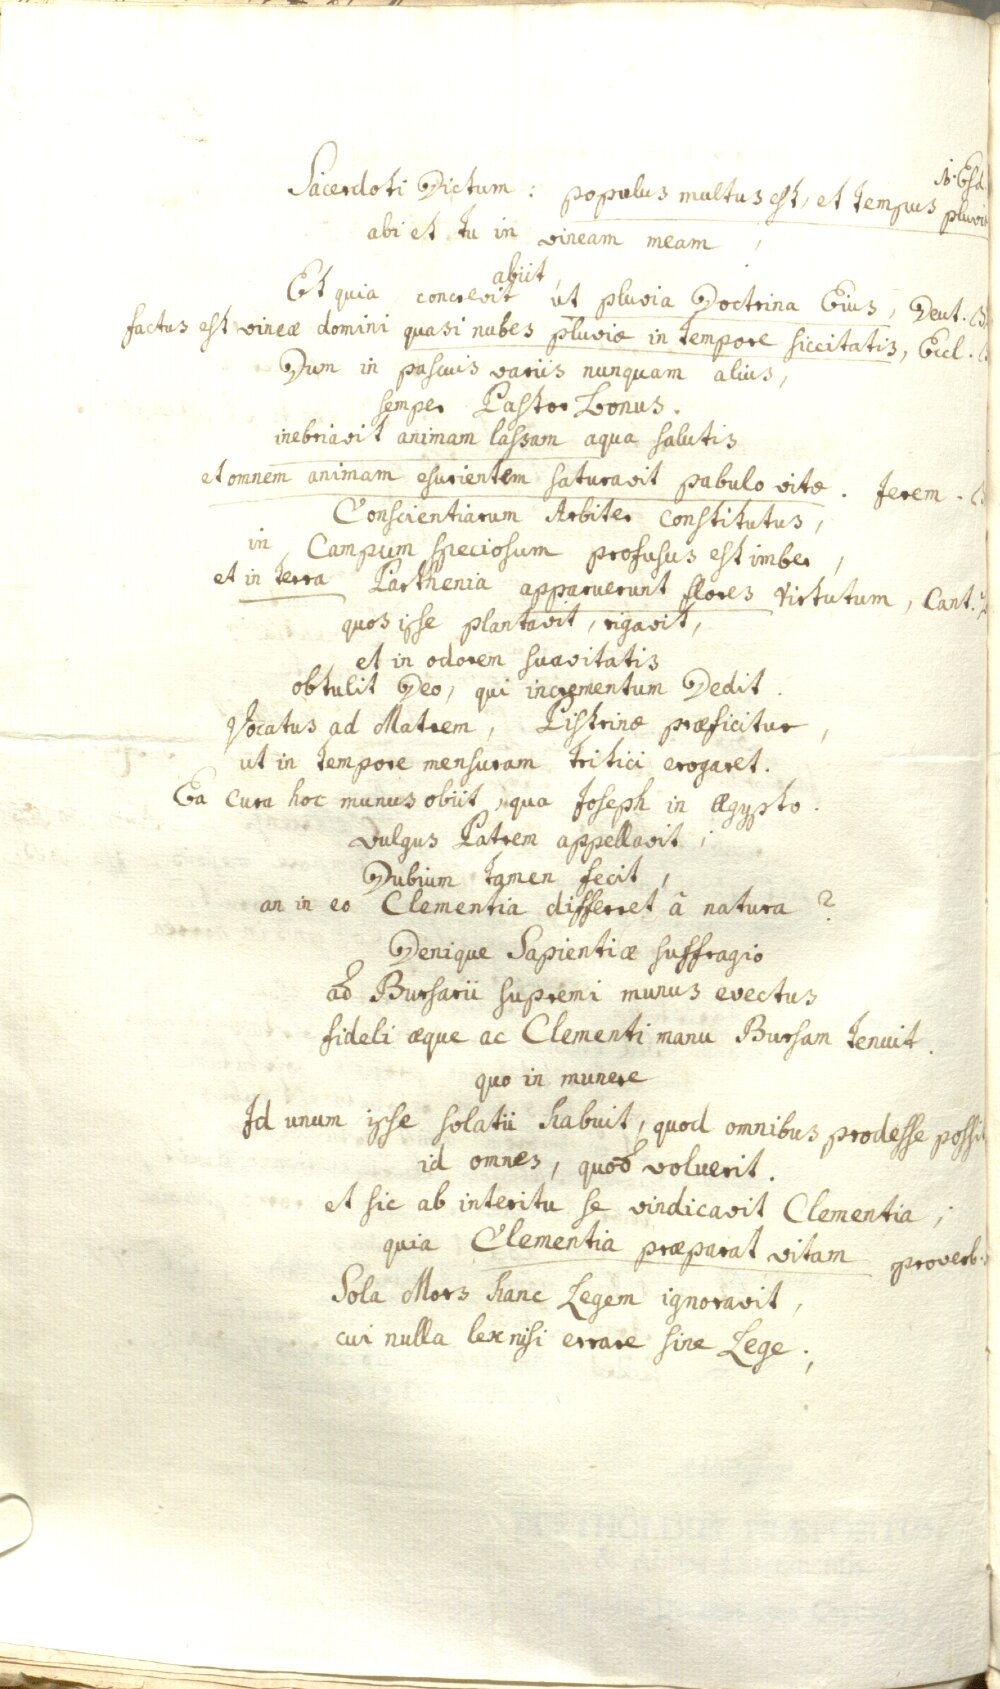 1. Esd.
Sacerdoti Dictum: populus multus est, et tempus pluviæ
abi et tu in vineam meam;
abiit,
Et quia concrevit ut pluvia Doctrina Eius, Deut.
factus est vineæ domini quasi nubes pluviæ in tempore siccitatis, Eccl.
Dum in pascuis variis nunquam alius,
semper Pastor Bonus.
inebriavit animam lassam aqua salutis
et omnem animam esurientem saturavit pabulo vitæ. Jerem.
Conscientiarum Arbiter constitutus,
in Campum speciosum profusus est imber,
et in terra Parthenia apparuerunt flores virtutum, Cant. 2
quos ipse plantavit, rigavit,
et in odorem suavitatis
obtulit Deo, qui incrementum Dedit.
Vocatus ad Matrem, Pistrinæ præficitur,
ut in tempore mensuram tritici erogaret.
Ea cura hoc munus obiit, qua Joseph in Ægypto.
vulgus Patrem appellavit;
Dubium tamen fecit,
an in eo Clementia differret â natura?
Denique Sapientiæ suffragio
ad Bursarii supremi munus evectus
fideli æque ac Clementi manu Bursam tenuit.
quo in munere
Id unum ipse solatii habuit, quod omnibus prodesse possit
id omnes, quod voluerit.
et sic ab interitu se vindicavit Clementia;
quia Clementia præparat vitam proverb.
Sola Mors hanc Legem ignoravit,
cui nulla lex nisi errare sine Lege;